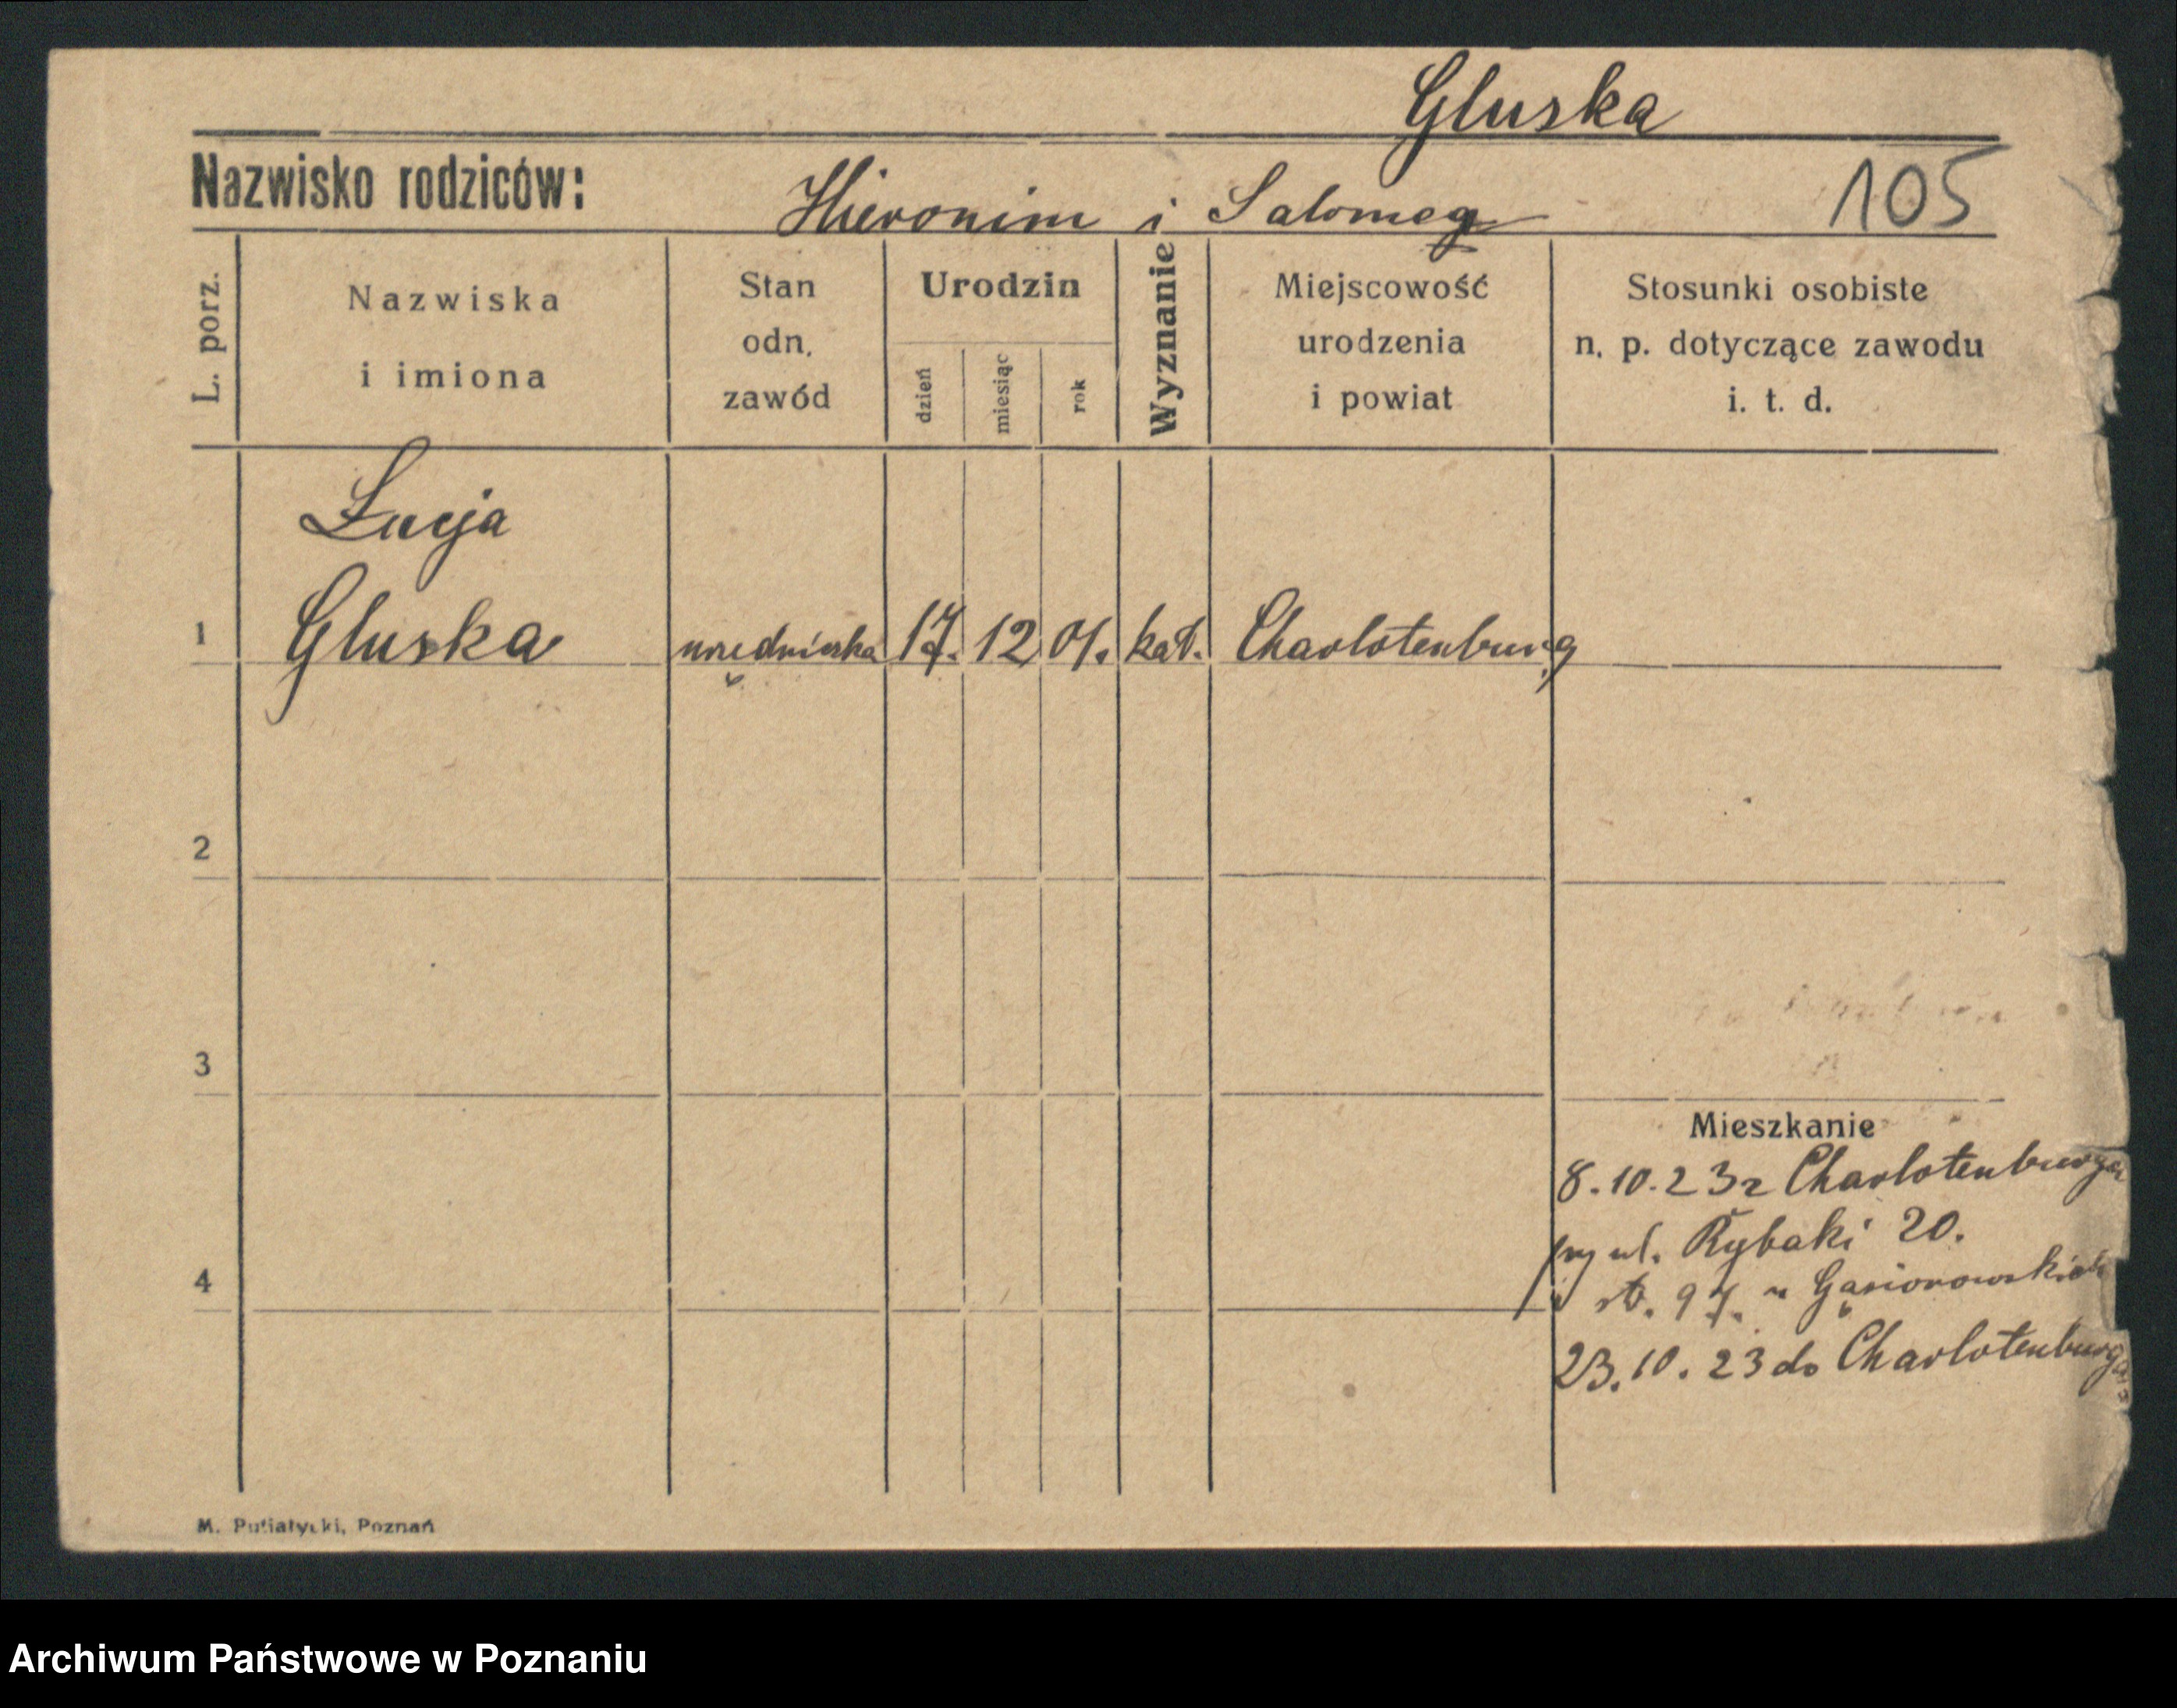 Gluska
Nazwisko rodziców: Hieronim i Salomea 105
L. porz.
Nazwiska
i imiona
Stan
odn.
zawód
Urodzin
dzień
miesiąc
rok
Wyznanie
Miejscowość
urodzenia
i powiat
Stosunki osobiste
n. p. dotyczące zawodu
i. t. d.
Łucja
1 Gluska urzędniczka 17. 12 01. kat. Charlotenburg
2
3
Mieszkanie
8.10.23 z Charlotenburga
przy ul. Rybaki 20.
4
97. u Gąsiorowskich
23.10.23 do Charlotenburga
M. Putiatycki, Poznań
Archiwum Państwowe w Poznaniu